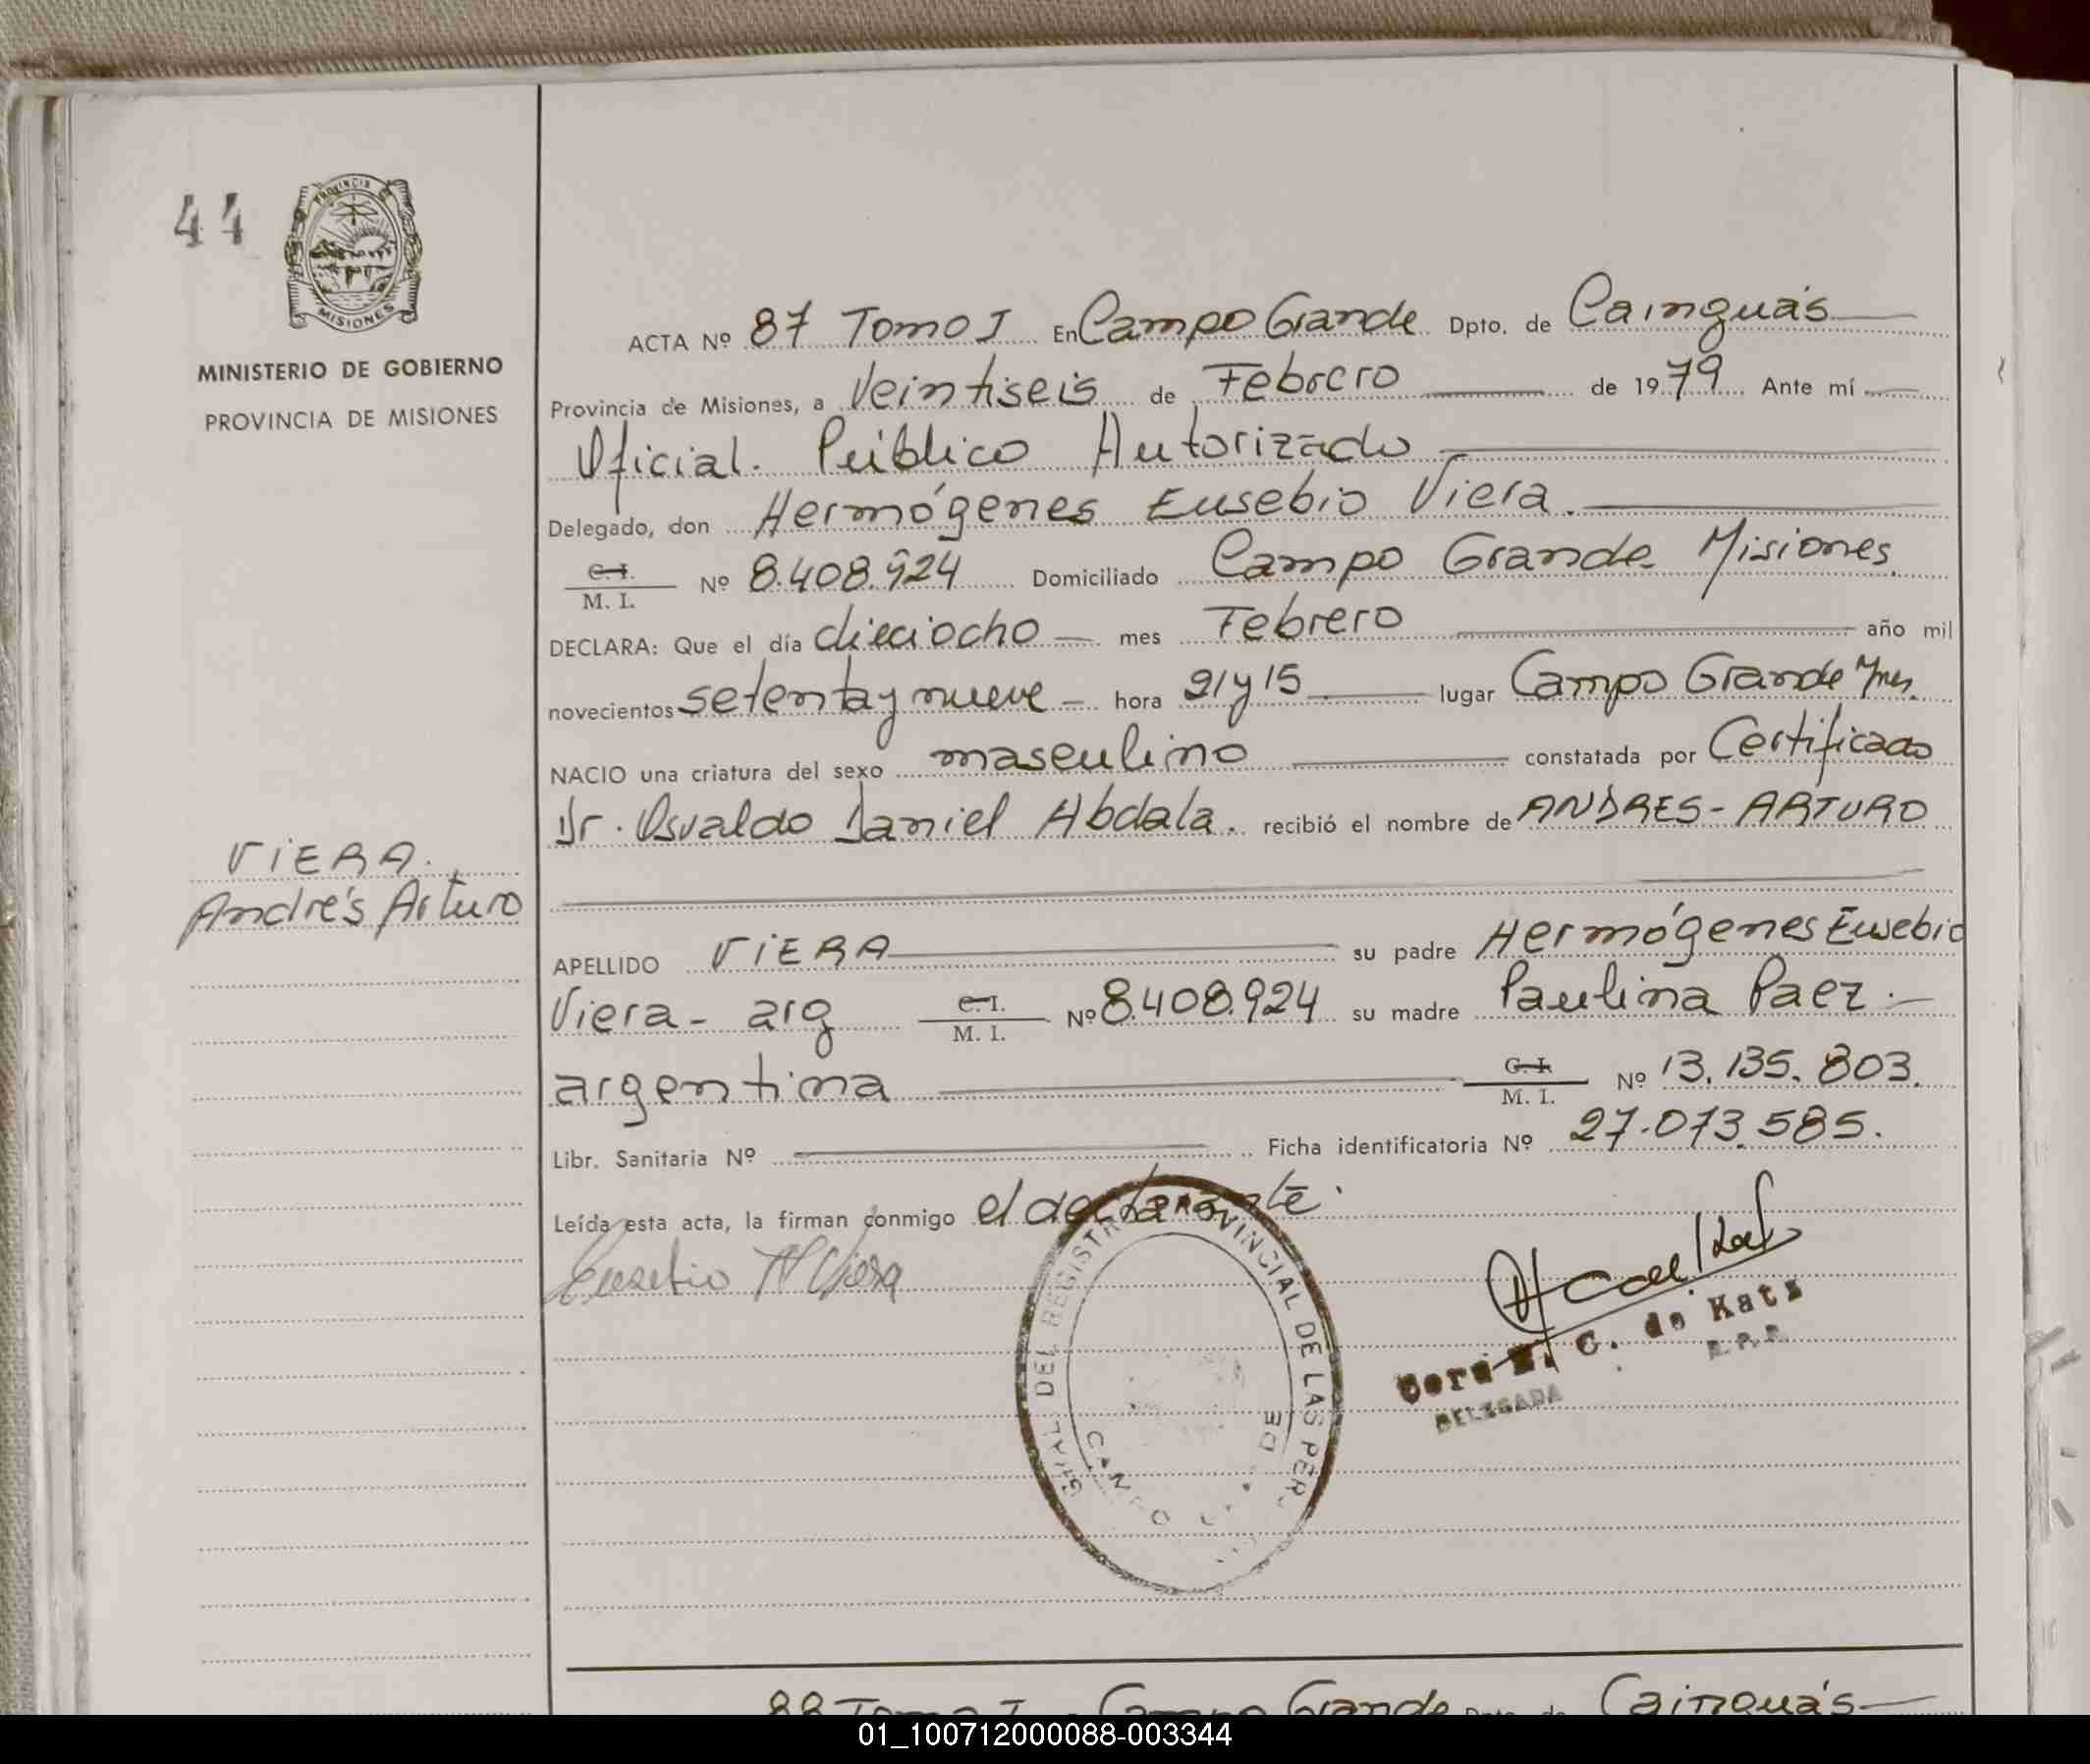 44
PROVINCIA DE
MISIONES
MINISTERIO DE GOBIERNO
PROVINCIA DE MISIONES
VIERA.
Andrés Arturo
ACTA Nº 87 Tomo I En Campo Grande Dpto. de Cainguás
Provincia de Misiones, a Veintiseis de Febrero de 1979 Ante mí
Oficial. Público Autorizado
Delegado, don Hermógenes Eusebio Viera.
C. I. M. I. Nº 8.408.924 Domiciliado Campo Grande Misiones.
DECLARA: Que el día dieciocho mes Febrero año mil
novecientos setenta y nueve - hora 21 y 15 lugar Campo Grande Mnes.
NACIO una criatura del sexo masculino constatada por Certificado
Dr. Osvaldo Daniel Abdala. recibió el nombre de ANDRES - ARTURO
APELLIDO VIERA su padre Hermógenes Eusebio
Viera - arg C. I. M. I. Nº 8.408.924 su madre Paulina Paez. -
argentina C. I. M. I. Nº 13.135.803.
Libr. Sanitaria Nº Ficha identificatoria Nº 27.073.585.
Leída esta acta, la firman conmigo el declarante.
Eusebio H Viera
DEL REGISTRO PROVINCIAL DE LAS PER
CAMPO
DE
C. de Katz
DELEGADA
88 Tomo I Campo Grande Dpto. de Cainguás
01_100712000088-003344